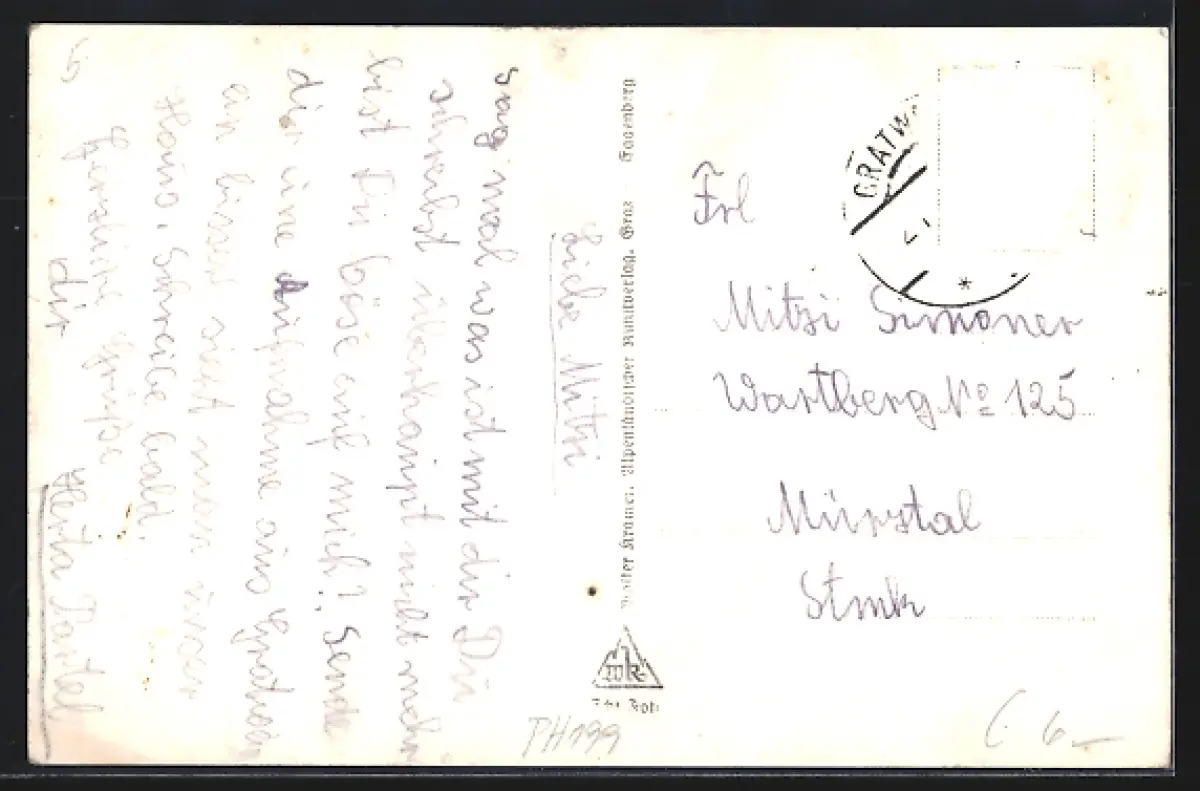 Liebe Mitzi
sag mal was ist mit dir Du
schreibst überhaupt nicht mehr
bist Du böse auf mich? Sende
dir eine Aufnahme aus Gratwein
ein bissel sieht man unser
Haus. Schreibe bald.
Herzliche Grüsse
dir
Herta Partel
5
Walter Kramer, Alpenländischer Kunstverlag, Graz
WK
GRATW
Frl
Mitzi Simoner
Wartberg No 125
Mürztal
Stmk
PH199
6.–